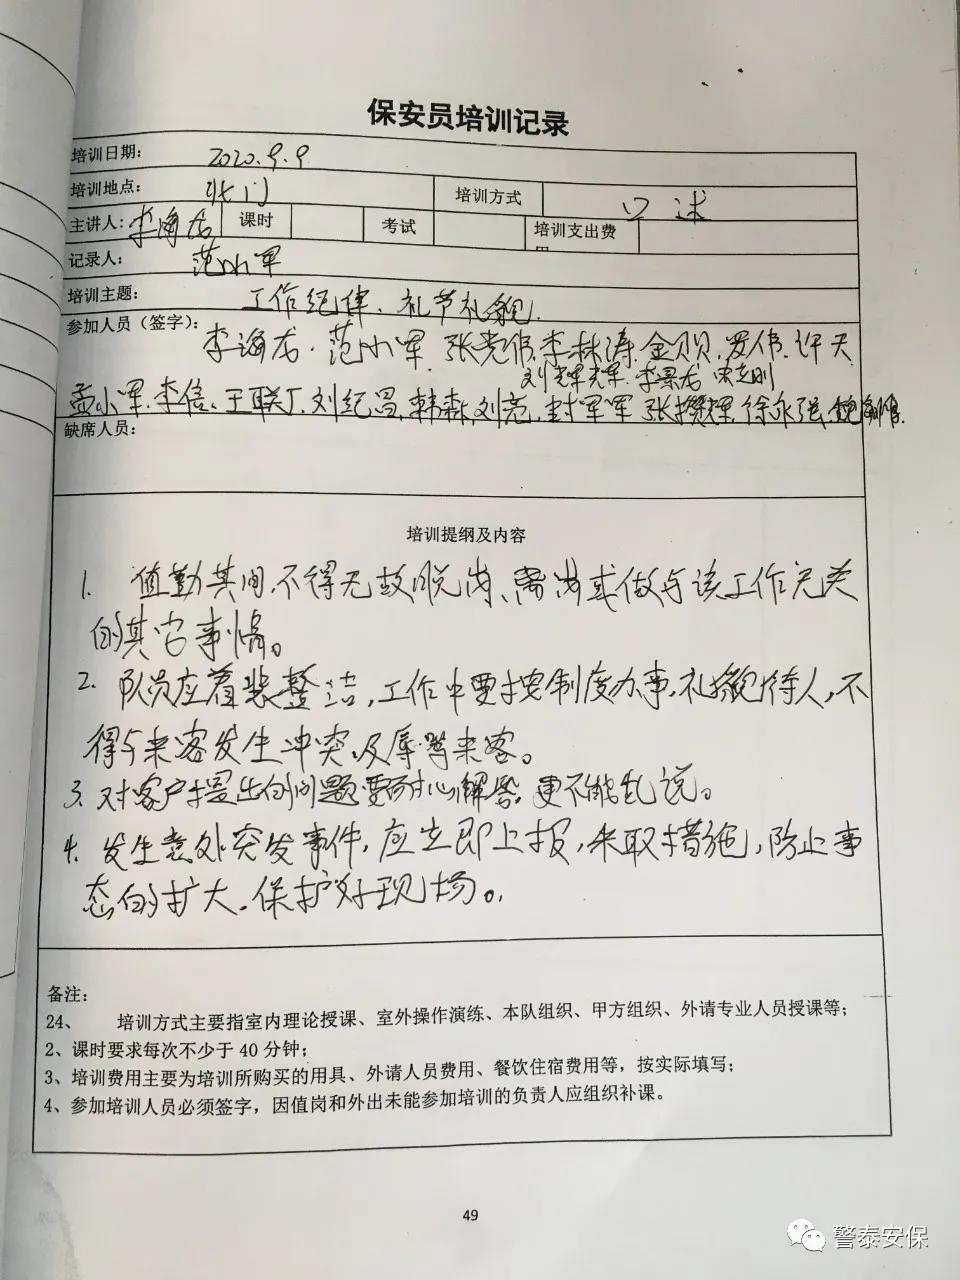 保安员培训记录
培训日期: 2020.9.9
培训地点: 北门 培训方式 口述
主讲人: 李海龙 课时 考试 培训支出费用
记录人: 范小军
培训主题: 工作纪律、礼节礼貌.
参加人员(签字): 李海龙. 范小军. 张光伟. 李林涛. 金贝贝. 罗伟. 许天
李果龙
孟小军. 李信. 王联丁. 刘纪昌, 韩森, 刘亮, 封军军 徐永强.
缺席人员:
培训提纲及内容
1. 值勤其间,不得无故脱岗、离岗或做与该工作无关
的其它事情。
2. 队员应着装整洁,工作中要按制度办事,礼貌待人,不
得与来客发生冲突及辱骂来客。
3. 对客户提出的问题要耐心解答,更不能乱说。
4. 发生意外突发事件,应立即上报,采取措施,防止事
态的扩大.保护好现场。
备注:
24、 培训方式主要指室内理论授课、室外操作演练、本队组织、甲方组织、外请专业人员授课等;
2、课时要求每次不少于 40 分钟;
3、培训费用主要为培训所购买的用具、外请人员费用、餐饮住宿费用等,按实际填写;
4、参加培训人员必须签字,因值岗和外出未能参加培训的负责人应组织补课。
49
警泰安保